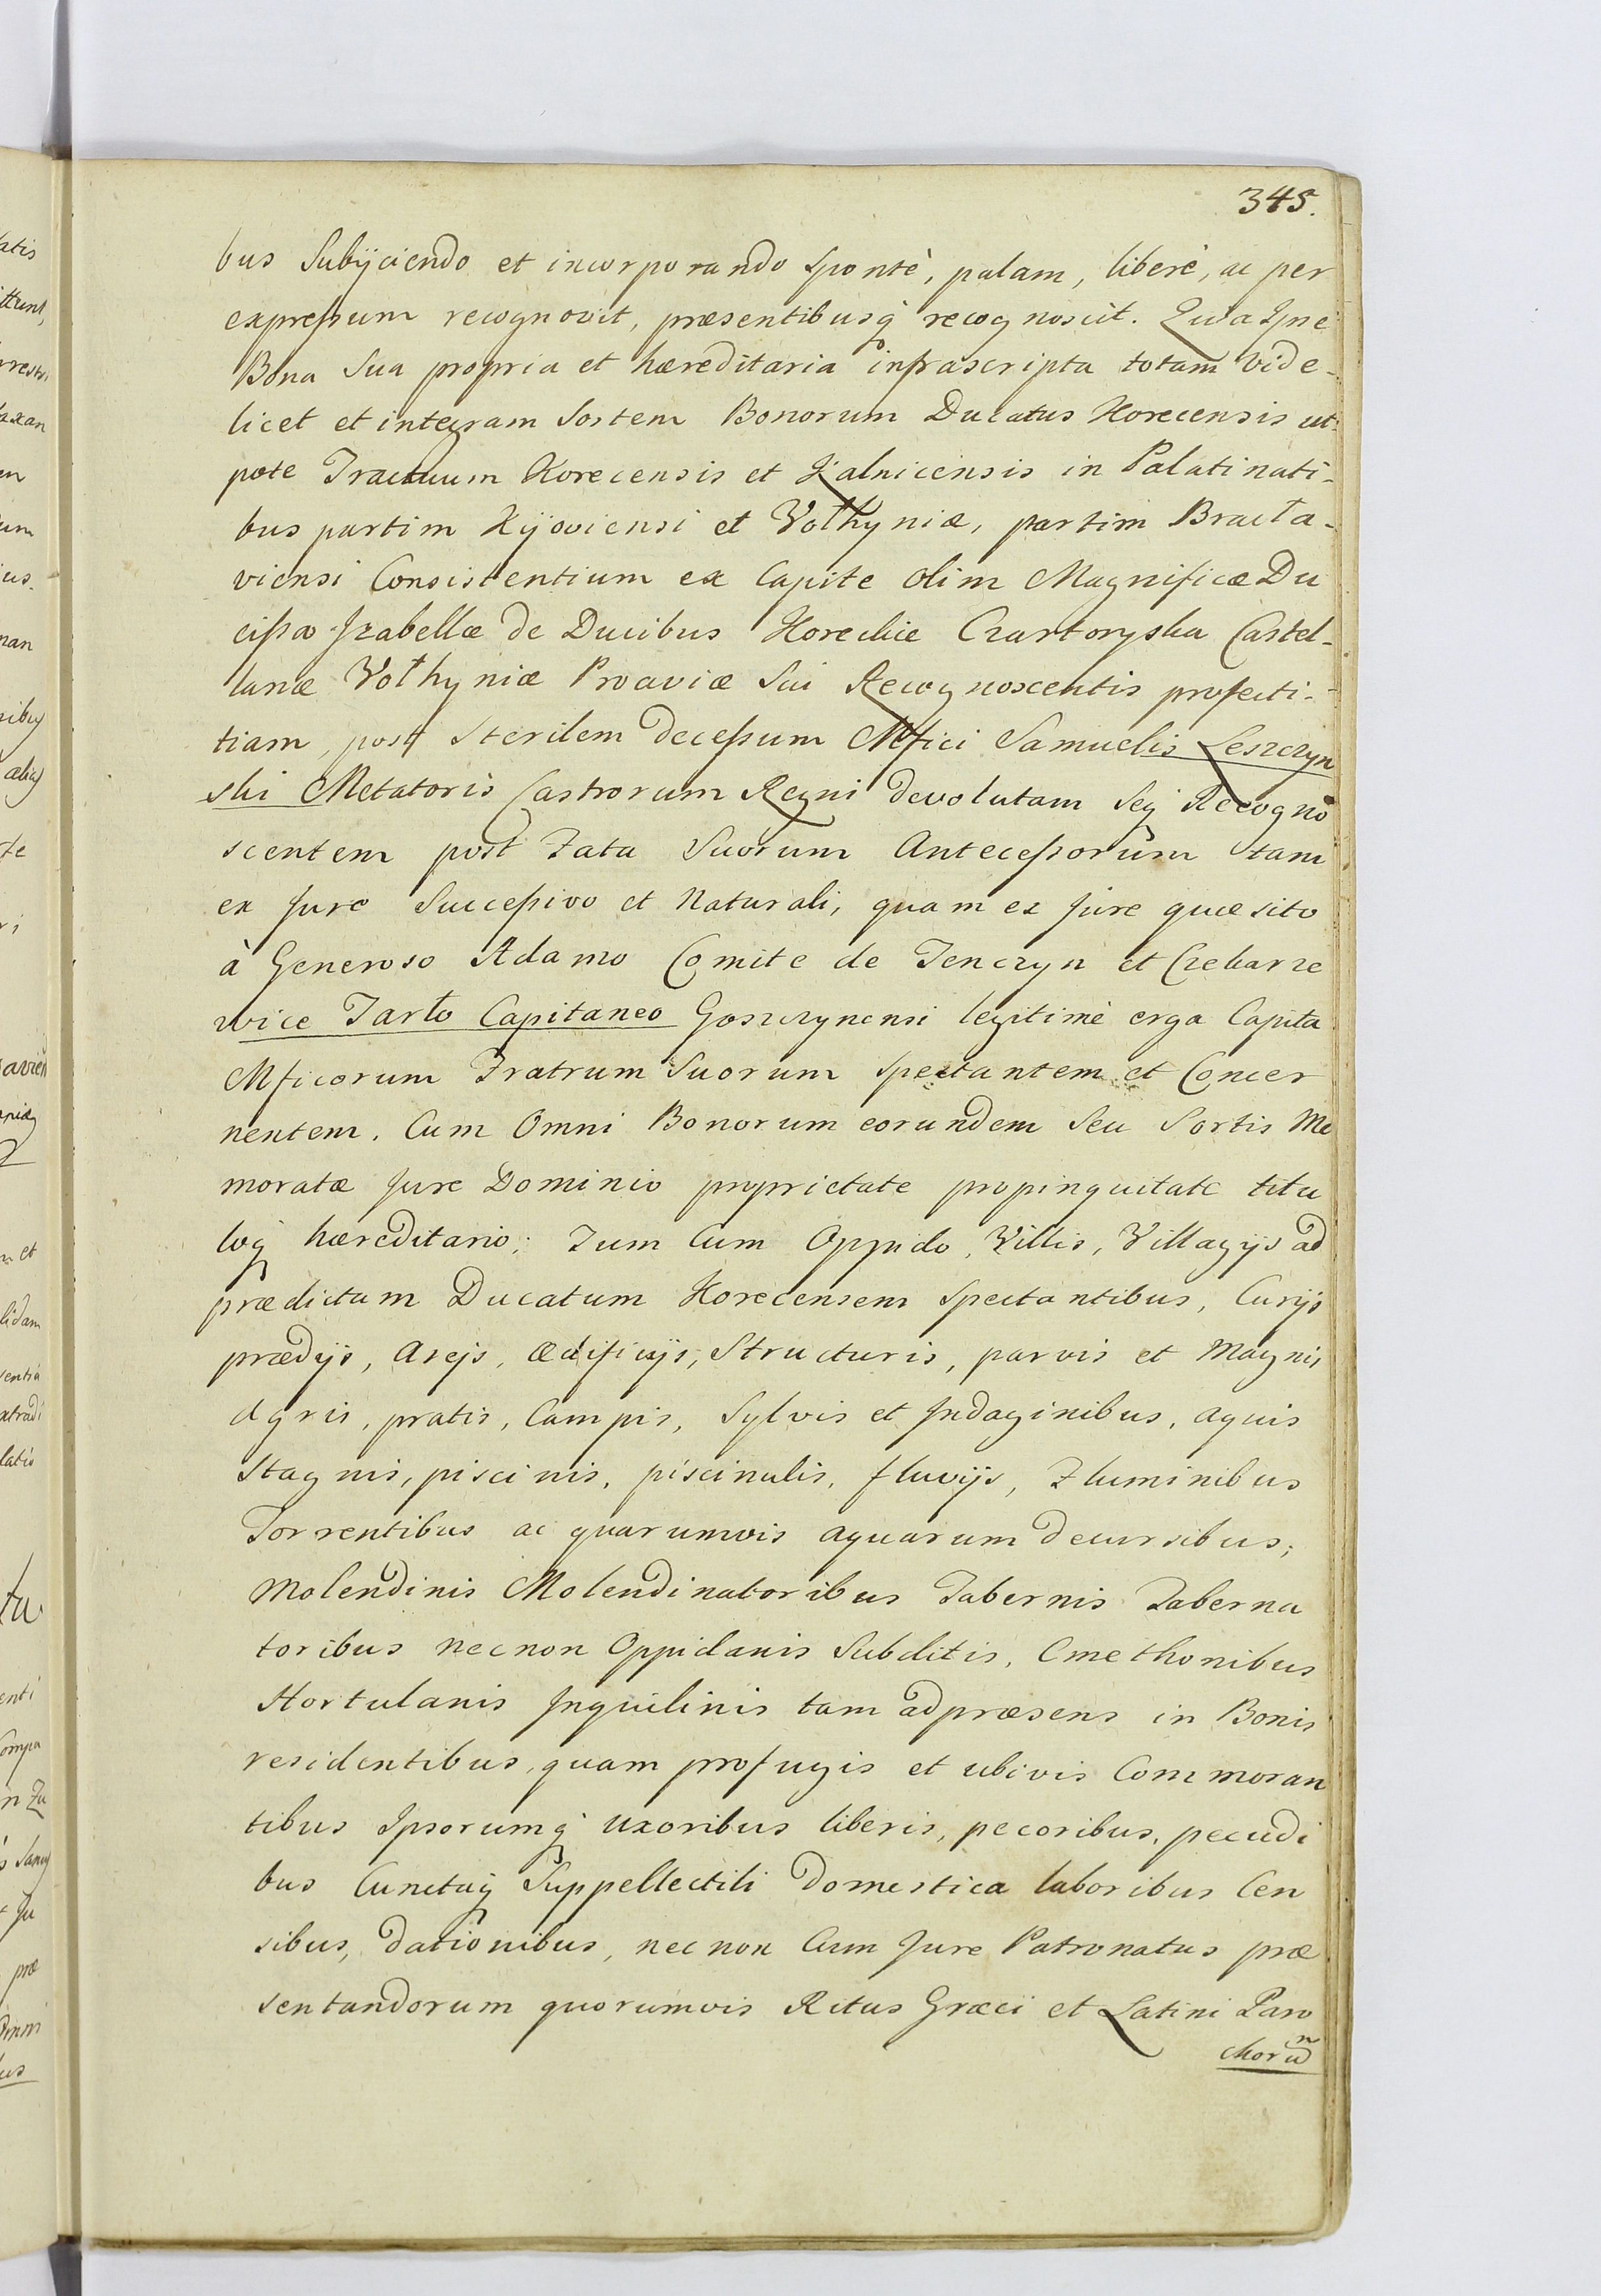 345.
bus Subijciendo et incorporando Spontè, palam, liberè, ac per
expressum recognovit, præsentibusq recognoscit. Quia Ipse
Bona Sua propria et hæreditaria infrascripta totam vide-
licet et integram Sortem Bonorum Ducatus Korecensis ut-
pote Tractuum Korecensis et Kalnicensis in Palatinati-
bus partim Kijoviensi et Vołhyniæ, partim Bracta-
viensi Consistentium ex Capite olim Magnificæ Du
cissæ Izabellæ de Ducibus Koreckie Czartoryska Castel-
lanæ Vołhyniæ Proaviæ Sui Recognoscentis profecti-
tiam, post Sterilem decessum Mfici Samuelis Leszczyn
ski Metatoris Castrorum Regni devolutam Seq Recogno
scentem post Fata Suorum Antecessorum tam
ex Jure Successivo et Naturali, quam ex Jure quæsito
à Generoso Adamo Comite de Tenczyn et Czekarze
wice Tarło Capitaneo Goszczynensi legitimè erga Capita
Mficorum Fratrum Suorum Spectantem et Concer
nentem. Cum Omni Bonorum eorundem Seu Sortis Me
moratæ Jure Dominio proprietate propinquitate titu
loq hæreditario; Tum Cum Oppido, Villis, Villagijs ad
prædictum Ducatum Korecensem Spectantibus, Curijs
prædijs, Arejs, ædificijs, Structuris, parvis et Magnis
Agris, pratis, Campis, Sylvis et Indaginibus, aquis
Stagnis, piscinis, piscinulis, fluvijs, Fluminibus
Torrentibus ac quarumvis aquarum decursibus;
Molendinis Molendinatoribus Tabernis Taberna
toribus necnon Oppidanis Subditis, Cmethonibus
Hortulanis Inquilinis tam ad præsens in Bonis
residentibus, quam profugis et ubivis Commoran
tibus Ipsorumq uxoribus liberis, pecoribus, pecudi
bus Cunctaq Suppellectili Domestica laboribus Cen
sibus, dationibus, nec non Cum Jure Patronatus præ
sentandorum quorumvis Ritus Græci et Latini Paro
chorũ